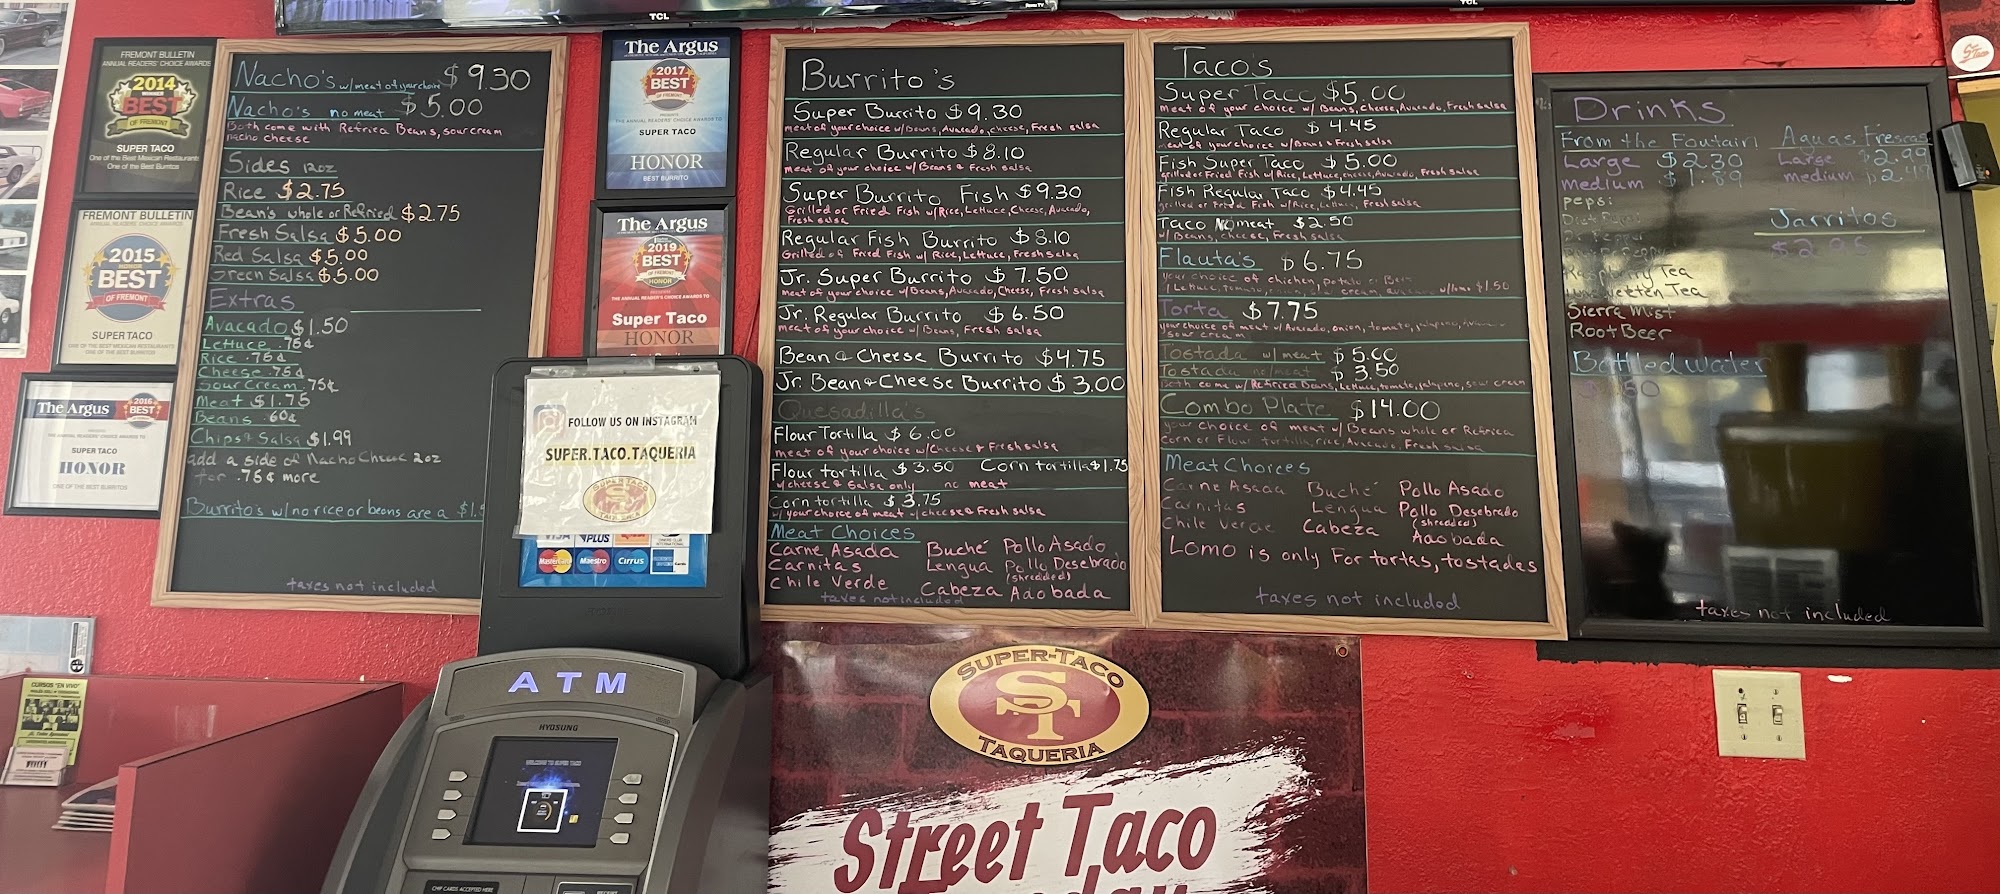 TCL
TCL
FREMONT BULLETIN
ANNUAL READERS' CHOICE AWARDS
2014
BEST
OF FREMONT
SUPER TACO
One of the Best Mexican Restaurants
One of the Best Burritos
FREMONT BULLETIN
ANNUAL READERS' CHOICE AWARDS
2015
BEST
OF FREMONT
SUPER TACO
ONE OF THE BEST MEXICAN RESTAURANTS
ONE OF THE BEST BURRITOS
The Argus
2016
BEST
SUPER TACO
HONOR
ONE OF THE BEST BURRITOS
Nacho's w/meat of your choice $9.30
Nacho's no meat $5.00
Both come with Refrica Beans, sour cream
nacho cheese
Sides 12oz
Rice $2.75
Bean's whole or Refried $2.75
Fresh Salsa $5.00
Red Salsa $5.00
Green Salsa $5.00
Extras
Avacado $1.50
Lettuce .75¢
Rice .75¢
Cheese .75¢
Sour Cream .75¢
Meat $1.75
Beans .60¢
Chips & Salsa $1.99
add a side of Nacho Cheese 2oz
for .75¢ more
Burrito's w/no rice or beans are a
taxes not included
The Argus
2017
BEST
OF FREMONT
SUPER TACO
HONOR
BEST BURRITO
The Argus
2019
BEST
OF FREMONT
HONOR
Super Taco
HONOR
FOLLOW US ON INSTAGRAM
SUPER.TACO.TAQUERIA
SUPER TACO
ST
VISA PLUS
MasterCard Maestro Cirrus
ATM
HYOSUNG
WELCOME TO SUPER TACO
CHIP CARDS ACCEPTED HERE
Burrito's
Super Burrito $9.30
meat of your choice w/Beans, Avacado, cheese, Fresh salsa
Regular Burrito $8.10
meat of your choice w/Beans & Fresh salsa
Super Burrito Fish $9.30
Grilled or Fried Fish w/Rice, Lettuce, Cheese, Avacado,
Fresh salsa
Regular Fish Burrito $8.10
Grilled or Fried Fish w/Rice, Lettuce, Fresh salsa
Jr. Super Burrito $7.50
meat of your choice w/Beans, Avacado, Cheese, Fresh salsa
Jr. Regular Burrito $6.50
meat of your choice w/Beans, Fresh salsa
Bean & Cheese Burrito $4.75
Jr. Bean & Cheese Burrito $3.00
Quesadilla's
Flour Tortilla $6.00
meat of your choice w/Cheese & Fresh salsa
Flour tortilla $3.50 Corn tortilla $1.75
w/cheese & Salsa only no meat
Corn tortilla $3.75
w/your choice of meat w/cheese & Fresh salsa
Meat Choices
Carne Asada Buché Pollo Asado
Carnitas Lengua Pollo Desebrado
(shredded)
Chile Verde Cabeza Adobada
taxes not included
Taco's
Super Taco $5.00
meat of your choice w/Beans, Cheese, Avacado, Fresh salsa
Regular Taco $4.45
meat of your choice w/Beans & Fresh salsa
Fish Super Taco $5.00
grilled or Fried Fish w/Rice, Lettuce, cheese, Avacado, Fresh salsa
Fish Regular Taco $4.45
grilled or Fried Fish w/Rice, Lettuce, Fresh salsa
Taco No meat $2.50
w/Beans, cheese, Fresh salsa
Flauta's $6.75
your choice of chicken, potato or
Lettuce, tomato, cream, $1.50
Torta $7.75
your choice of meat w/Avacado, onion, tomato, jalapeno,
sour cream
Tostada w/meat $5.00
Tostada no/meat $3.50
Both come w/Refried Beans, Lettuce, tomato, jalapino, sour cream
Combo Plate $14.00
your choice of meat w/Beans whole or Refrica
corn or Flour tortilla, rice, Avacado, Fresh salsa
Meat Choices
Carne Asada Buché Pollo Asado
Carnitas Lengua Pollo Desebrado
(shredded)
Chile Verde Cabeza Adobada
Lomo is only For tortas, tostadas
taxes not included
Drinks
From the Foutain Aguas Frescas
Large $2.30 Large $2.99
medium $1.89 medium $2.49
pepsi
Jarritos
$2.95
Raspberry Tea
Sierra Mist
Root Beer
Bottled water
taxes not included
SUPER-TACO
ST
TAQUERIA
Street Taco
CURSOS "EN VIVO"